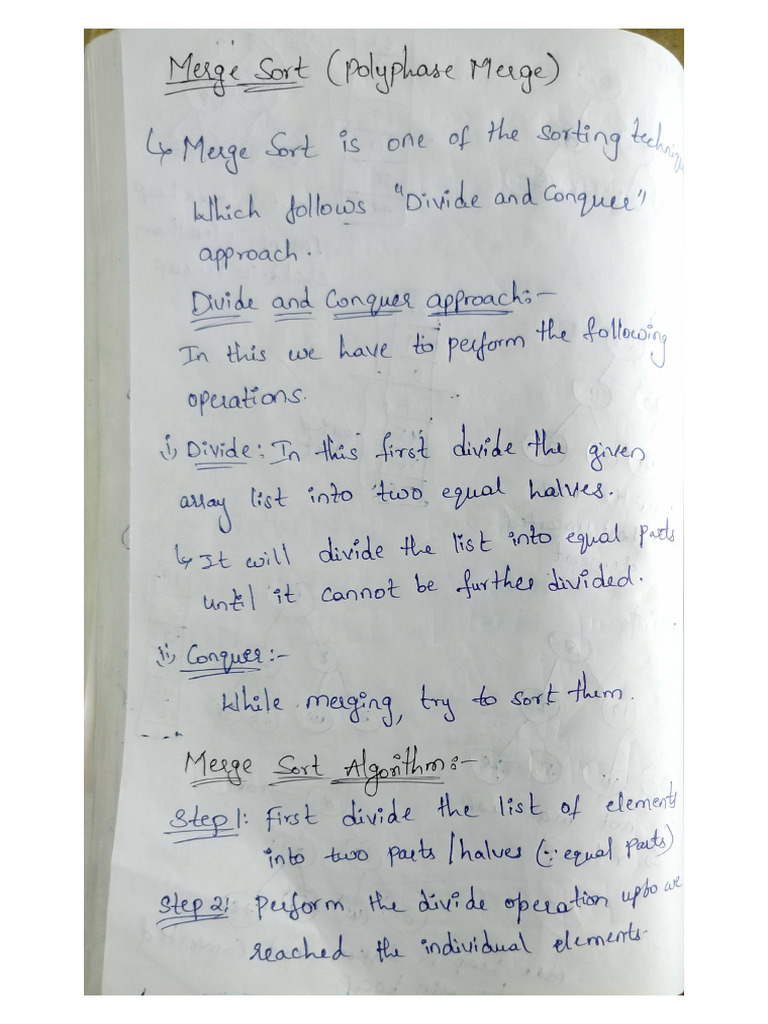 Merge Sort (Polyphase Merge)
↳ Merge Sort is one of the sorting
Which follows "Divide and Conquer"
approach.
Divide and Conquer approach:-
In this we have to perform the following
operations.
i) Divide: In this first divide the given
array list into two equal halves.
↳ It will divide the list into equal parts
until it cannot be further divided.
ii) Conquer:-
While merging, try to sort them.
Merge Sort Algorithm:-
Step 1: First divide the list of elements
into two parts/halves (∵ equal parts)
Step 2: Perform the divide operation upto we
reached the individual elements.